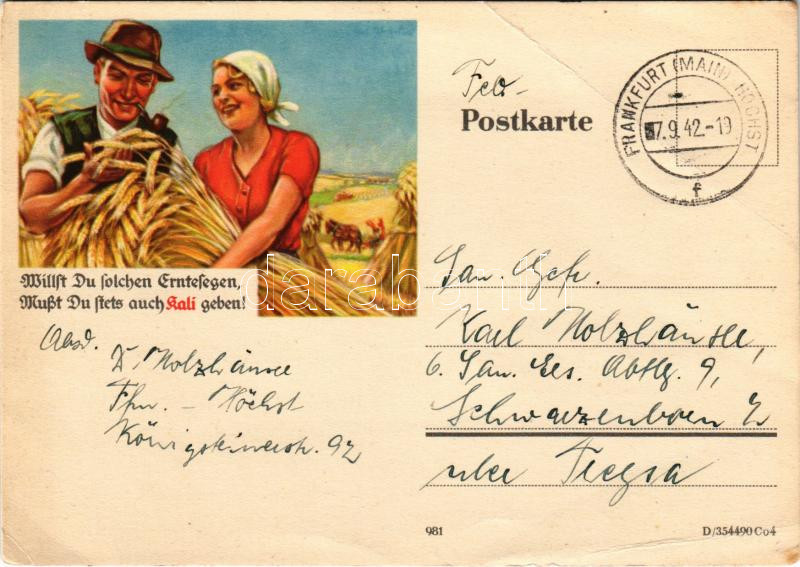 Willst Du solchen Erntesegen,
Mußt Du stets auch Kali geben!
Feld-
Postkarte
FRANKFURT (MAIN) - HÖCHST
7.9.42.-19
f
San. Gefr.
Karl Holzhäuse,
6. San. Ers. Abtlg. 9,
Schwarzenborn
über Treysa
Absd.
D. Holzhäuse
Ffm. - Höchst
Königsteinerstr. 92
981
D/354490 Co4
darabanth